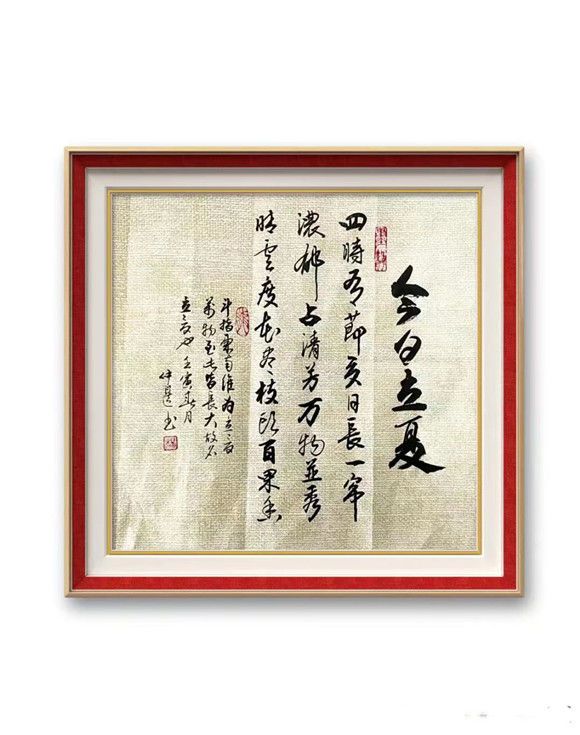 今日立夏
四時有節日長一帘
濃郁占清芳万物並秀
晴雲度花尽枝頭百果香
斗指東南維為立夏
萬物至此皆長大故名
立夏也壬寅春月
仲书